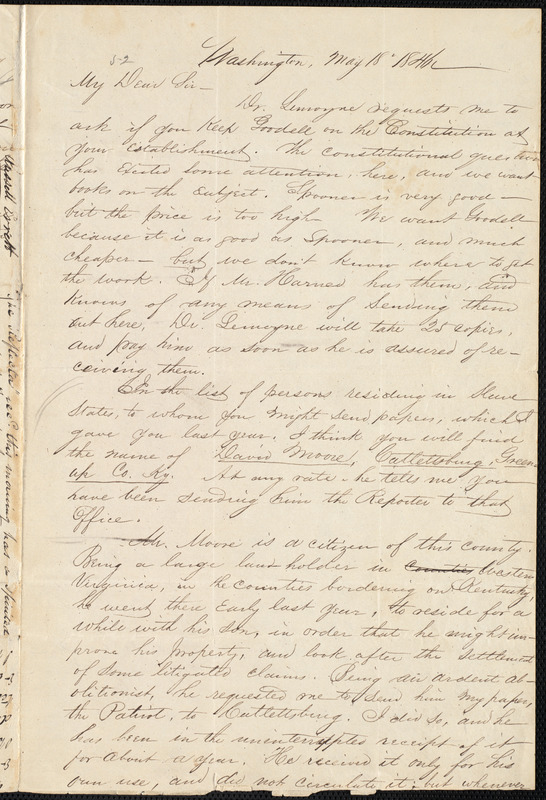 5-2
Washington, May 18th 1846
My Dear Sir—
Dr. Lemoyne requests me to
ask if you keep Goodell on the Constitution at
your establishment. The constitutional question
has excited some attention, here, and we want
books on the subject. Spooner is very good—
but the price is too high. We want Goodell
because it is as good as Spooner, and much
cheaper— but we don't know where to get
the work. If Mr. Harned has them, and
knows of any means of sending them
out here, Dr. Lemoyne will take 25 copies,
and pay him as soon as he is assured of re-
ceiving them.
In the list of persons residing in Slave
States, to whom you might send papers, which I
gave you last year, I think you will find
the name of David Moore, Catlettsburg, Green-
up Co. Ky. At any rate he tells me you
have been sending him the Reporter to that
Office.
Mr. Moore is a citizen of this county.
Being a large land holder in Counties Western
Virginia, in the counties bordering on Kentucky,
he went there early last year, to reside for a
while with his son, in order that he might im-
prove his property, and look after the settlement
of some litigated claims. Being an ardent ab-
olitionist, he requested me to send him my paper,
the Patriot, to Catlettsburg. I did so, and he
has been in the uninterrupted receipt of it
for about a year. He received it only for his
own use, and did not circulate it; but whenever